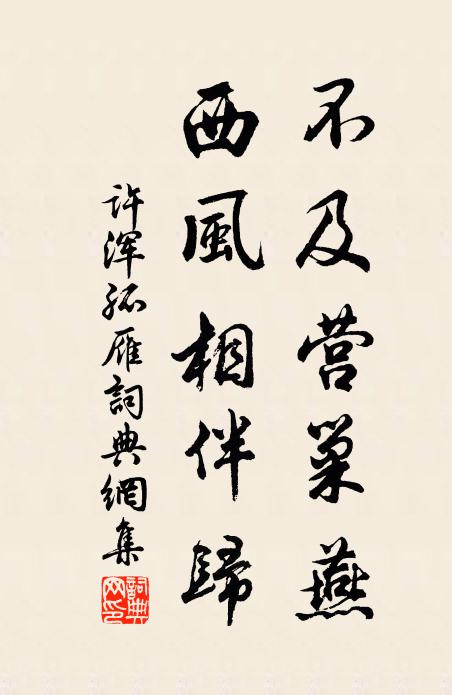 不及营巢燕
西風相伴歸
许浑孤雁詞典網集
詞典网印